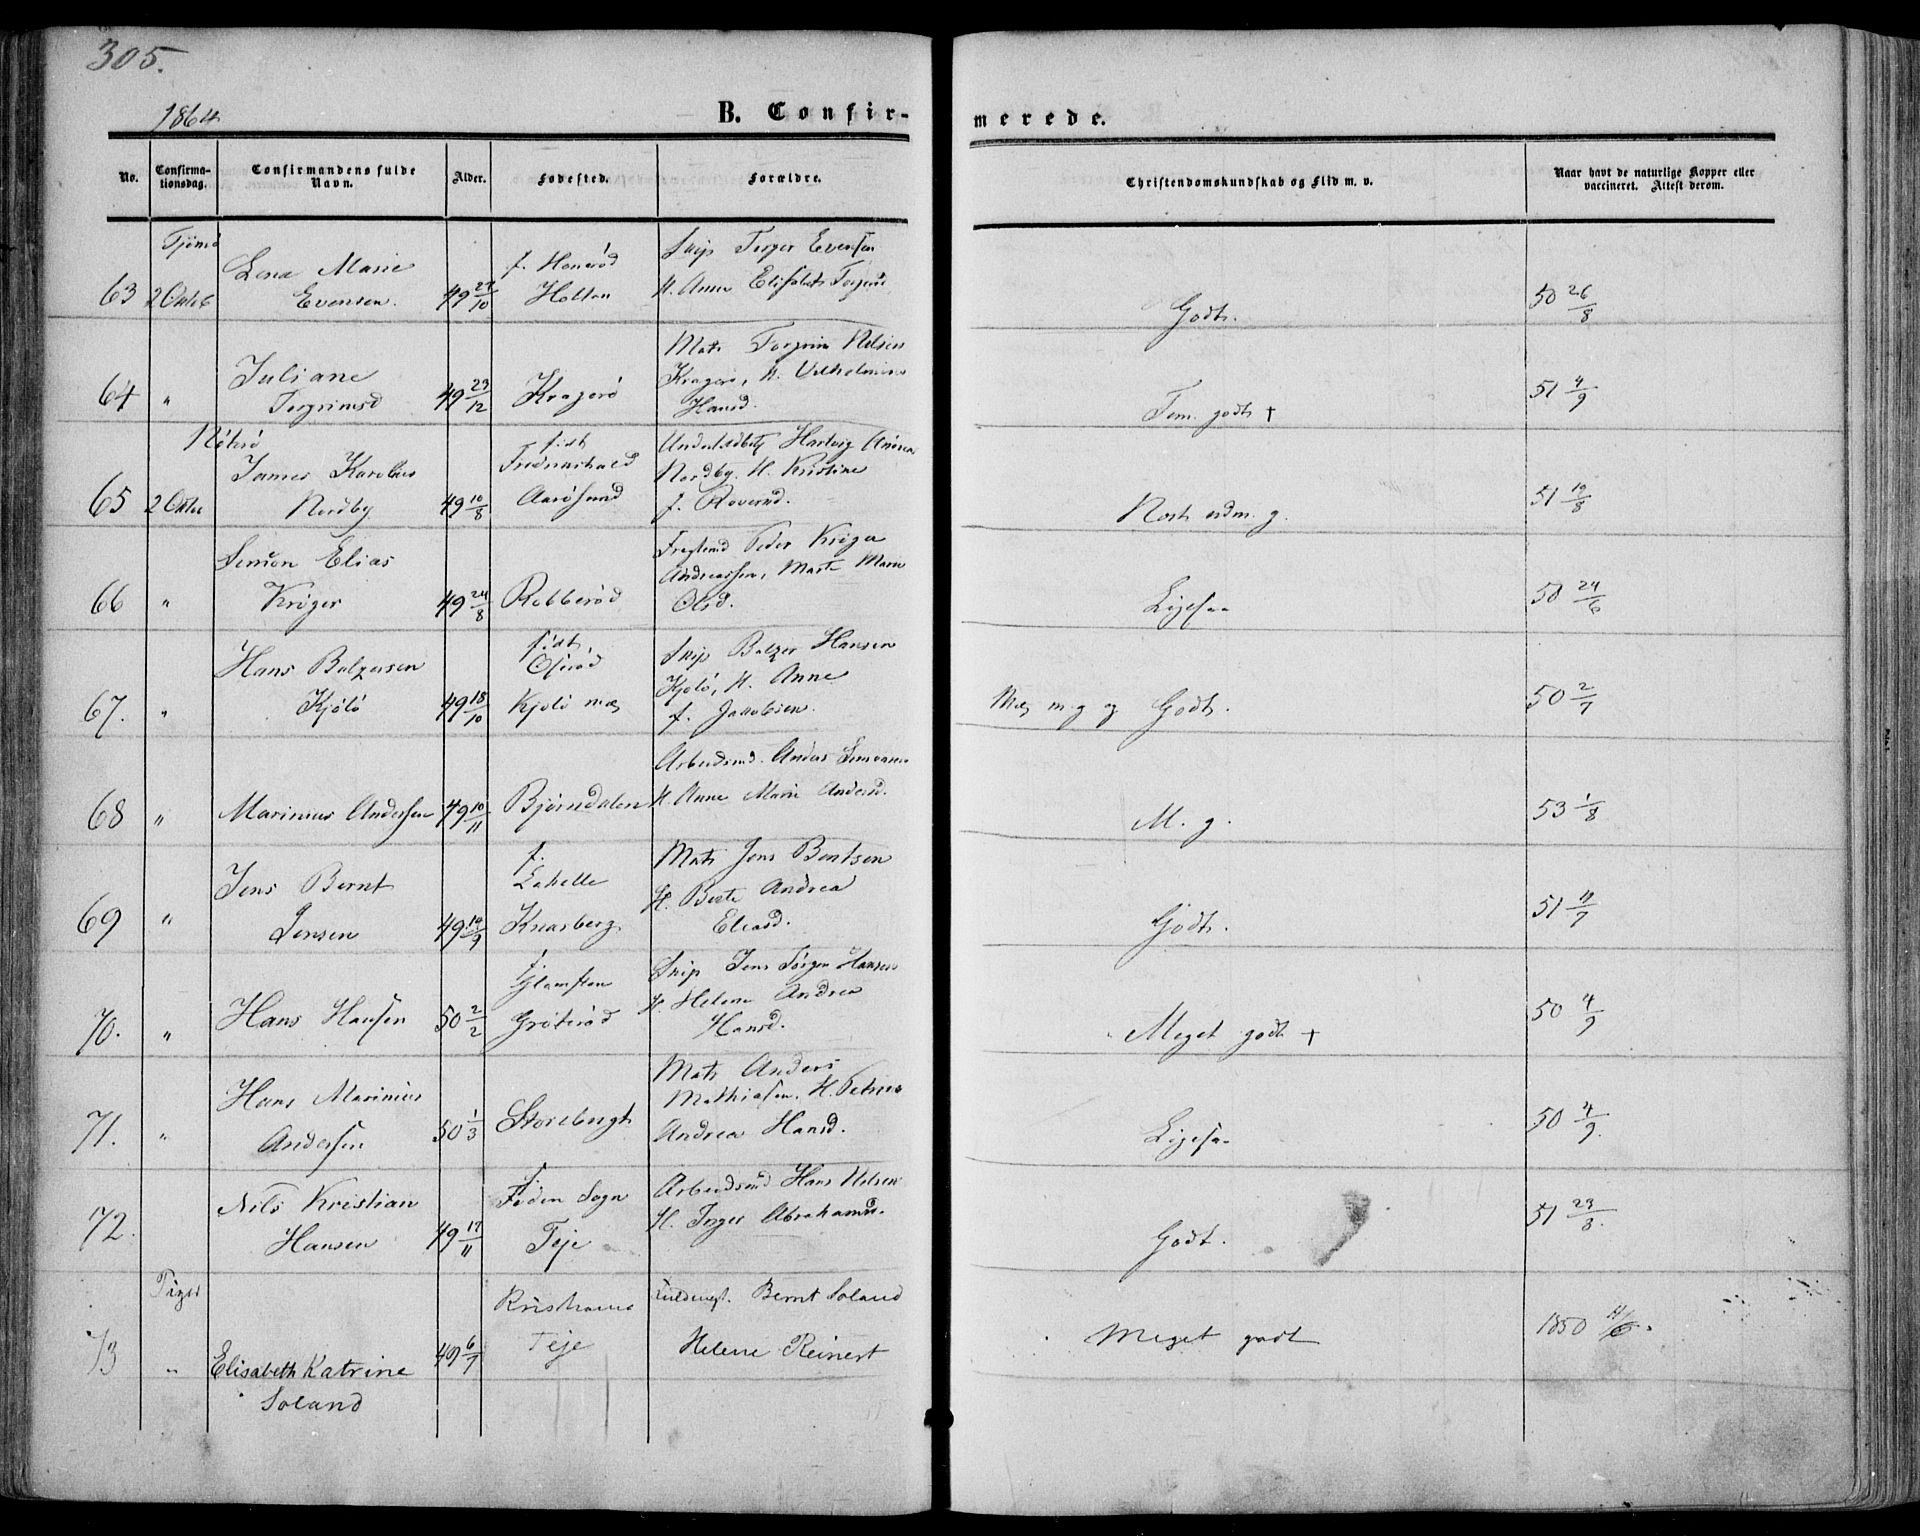 305.
1864
B. Confir-
merede.
No.
Confirma-
tionsdag.
Confirmandens fulde
Navn.
Alder.
Fødested.
Forældre.
Christendomskundskab og Flid m. v.
Naar havt de naturlige Kopper eller
vaccineret. Attest derom.
Tjømø
63 2 Octob Lena Marie
Evensen. 49 27/10
f. Honerød
Holtan
Skip Terger Evensen
H. Anne Elisabeth
Godt. 50 26/8
64 " Juliane
Torgrimsd 49 23/12 Kragerø
Mats Torgrim Nelsen
Kragerø, H. Vilhelmine
Hansd.
Tem. godt + 51 4/9
Nøterø
65 2 Octbr James Karolius
Nordby 49 10/8
født
Fredrikshald
Aarøsund
Hartvig
Nordby. H. Kristine
f.
51 10/8
66 " Simon Elias
Krøger 49 24/8 Robberød
Peder Krøger
Andreassen, Marte Marie
Olsd.
Ligesaa 50 24/6
67. " Hans Balzersen
Kjølø 49 18/10
født
Kjølø
Skip Balzer Hansen
Kjølø, H. Anne
f. Jacobsen.
Godt. 50 2/7
68 " Marinius Andersen 49 10/11 Bjørndalen
Arbeidsmd. Anders
H. Anne Marie Andersd.
M. g. 53 1/8
69 " Jens Bernt
Jensen 49 14/9
f.
Knarberg
Mats Jens Bentsen
H. Berte Andrea
Eliasd.
Godt. 51 11/7
70. " Hans Hansen 50 2/2
f.
Glomsten
Grøterød
Skip Jens Jørgen Hansen
H. Helene Andrea
Hansd.
Meget godt + 50 4/9
71. " Hans Marinius
Andersen 50 1/3 Storebergt
Mats Anders
Mathiasen. H. Petrine
Andrea Hansd.
Ligesaa 50 4/9.
72. Nils Kristian
Hansen 49 17/11
f.
Sogn
Teje
Arbeidsmd Hans Nelsen
H. Inger Abrahamsd.
Godt. 51 23/8.
73 " Elisabeth Katrine
Soland
49 6/7
Kristiania
Teje
Bernt Soland
Helene Reinert
Meget godt 1850 11/6.